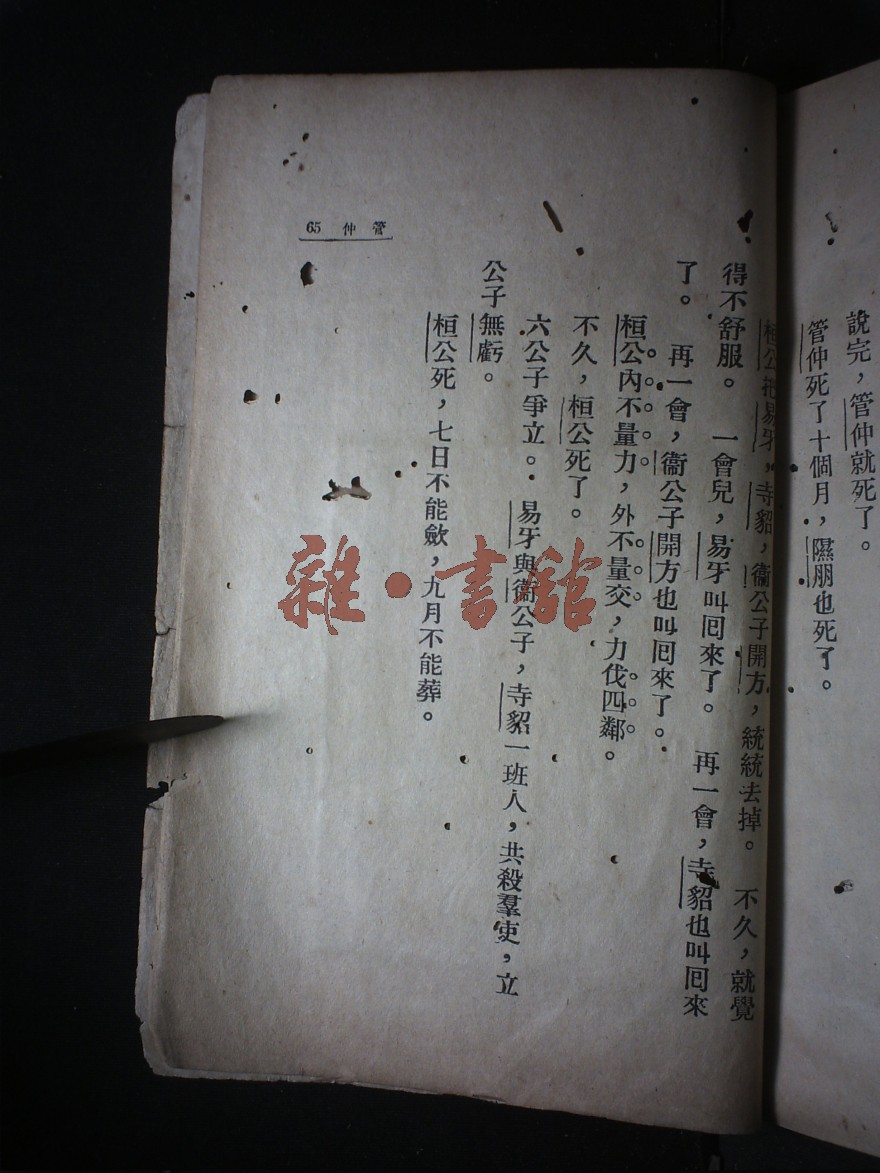 說完，管仲就死了。
管仲死了十個月，隰朋也死了。
桓公把易牙，寺貂，衞公子開方，統統去掉。　不久，就覺
得不舒服。　一會兒，易牙叫囘來了。　再一會，寺貂也叫囘來
了。　再一會，衞公子開方也叫囘來了。
桓公內不量力，外不量交，力伐四鄰。
不久，桓公死了。
六公子爭立。　易牙與衞公子，寺貂一班人，共殺羣吏，立
公子無虧。
桓公死，七日不能斂，九月不能葬。
管仲 65
雜·書館